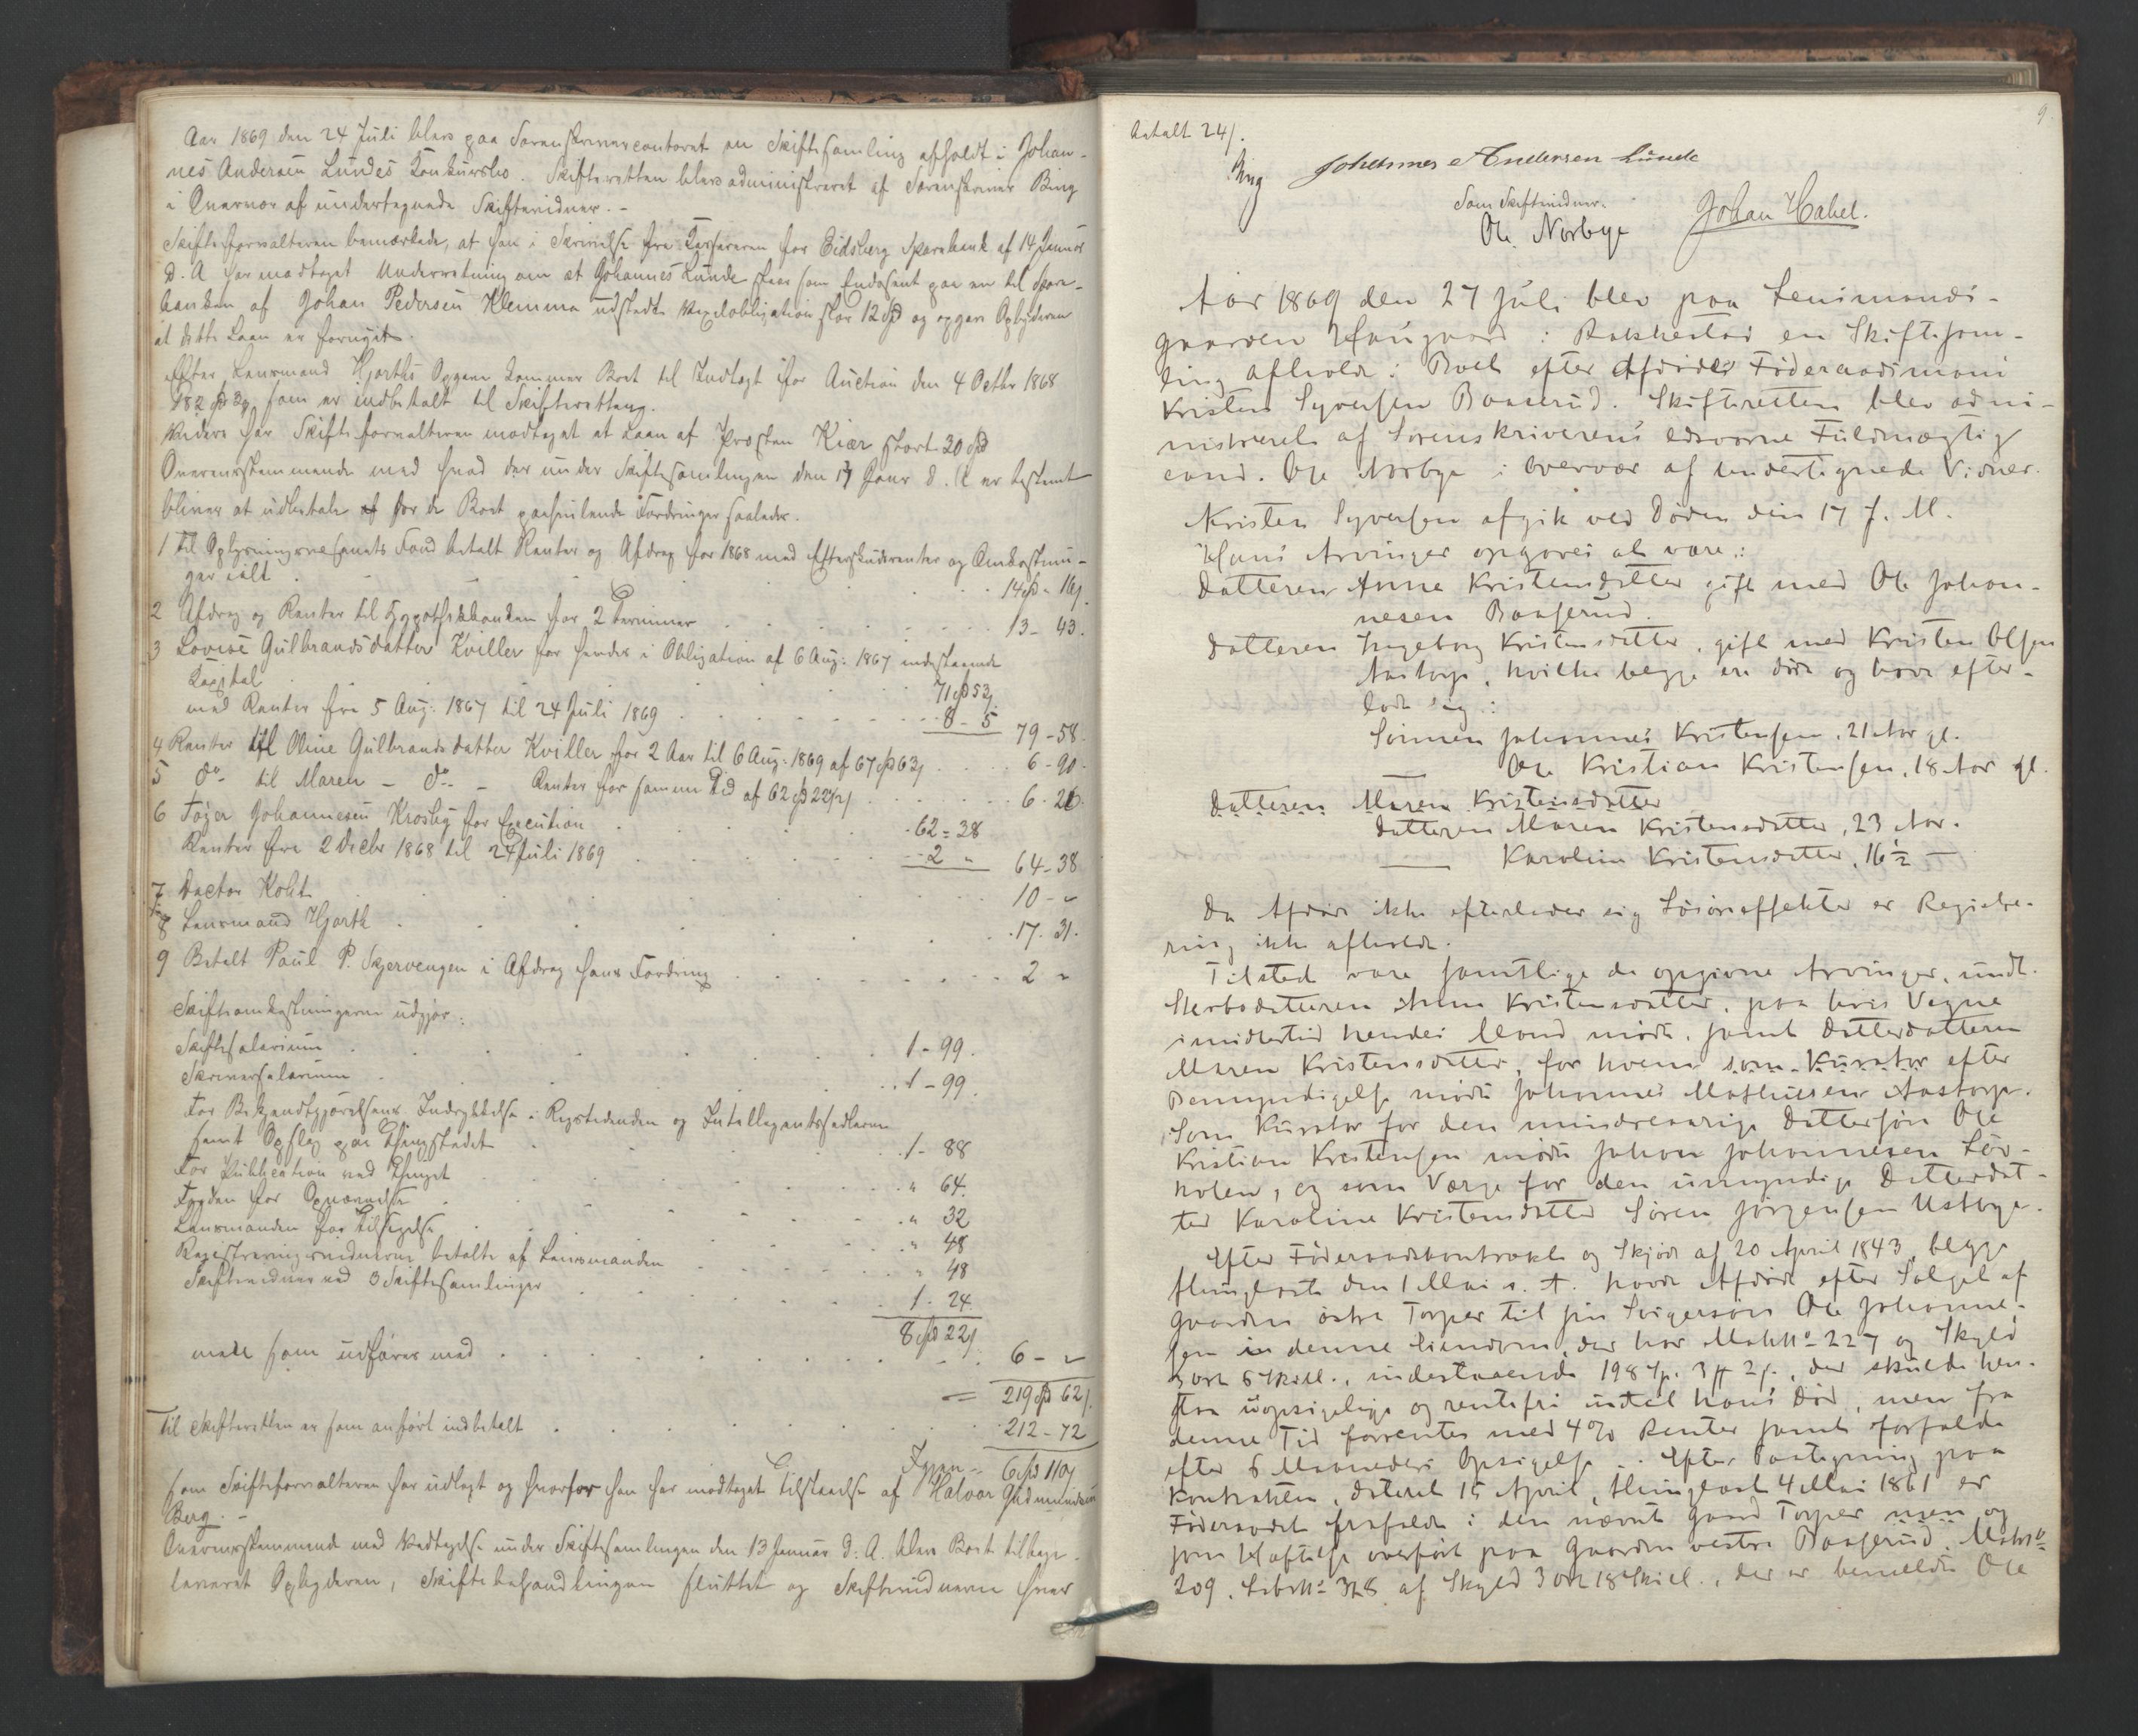 Aar 1869 den 24 Juli blev paa Sorenskrivercontoret en Skiftesamling afholdt i Johan-
nes Andersen Lundes Konkursbo. Skifteretten blev administreret af Sorenskriver Bing
i Overvær af undertegnede Skiftevidner. -
Skifteforvalteren bemærkede, at han i Skrivelse fra Kassereren for Eidsberg Sparebank af 14 Januar
d. A har modtaget Underretning om at Johannes Lunde staar som Endosent paa en til Spare-
banken af Johan Pedersen Klemma udstedt Vexelobligation stor 12 Spd og opgav Opbyderen
at dette Laan er fornyet.
Efter Lensmand Hjorths Opgave kommer Boet til Indtægt for Auction den 4 Octbr 1868
182 Spd som er indbetalt til Skifteretten.
Videre har Skifteforvalteren modtaget et Laan af Provsten Kiær stort 30 Spd
Overensstemmende med hvad der under Skiftesamlingen den 13 Janr d. A er bestemt
bliver at udbetale af for de Boet paahvilende Fordringer saaledes.
1 Til Oplysningsvesenets Fond betalt Renter og Afdrag for 1868 med Efterskudsrenter og Omkostnin-
ger ialt . . . 14 Spd - 16 s.
2 Afdrag og Renter til Hypothekbanken for 2 Terminer . . . 13 - 43.
3 Lovise Gulbrandsdatter Kviller for hendes i Obligation af 6 Aug: 1867 indestaaende
Kapital . . . 71 Spd 53
med Renter fra 5 Aug: 1867 til 24 Juli 1869 . . . 8 - 5 79 - 58.
4 Renter til Oline Gulbrandsdatter Kviller for 2 Aar til 6 Aug: 1869 af 67 Spd 63 . . . 6 - 90.
5 do til Maren - do - Renter for samme Tid af 62 Spd 22½ . . . 6 - 26.
6 Tøger Johannesen Krosby for Execution . . . 62 = 38
Renter fra 2 Decbr 1868 til 24 Juli 1869 . . . 2 " 64 - 38
7 Doctor Kolit . . . 10 - "
8 Lensmand Hjorth . . . 17. 31.
9 Betalt Paul P. Skjervengen i Afdrag hans Fordring . . . 2 "
Skifteomkostningerne udgjør:
Skiftesalarium . . . 1 - 99.
Skriversalarium . . . 1 - 99.
For Bekjendtgjørelsens Indrykkelse i Rigstidenden og Intelligentssedlerne
samt Opslag paa Thingstedet . . . 1 - 88
For Publication ved Thinget . . . " 64.
Fogden for Opnævnelse . . . " 32
Lensmanden for Tilsigelse . . . " 48
Registreringsvidnerne betalte af Lensmanden . . . " 48
Skiftevidner ved 3 Skiftesamlinger . . . 1. 24
8 Spd 22
men som udføres med . . . 6 - "
= 219 Spd 62
Til Skifteretten er som anført indbetalt . . . 212 - 72
Igjen - 6 Spd 110
som Skifteforvalteren har udlagt og hvorfor han har modtaget Tilstaaelse af Halvor Gudmundsen
Berg. -
Overensstemmende med Vedtagelse under Skiftesamlingen den 13 Januar d. A. blev Boet tilbage-
leveret Opbyderen, Skiftebehandlingen sluttet og Skiftevidnerne hver
9
betalt 24 s.
Bing Johannes Andersen Lunde
Som Skiftevidner.
Ole Norbye Johan Habel.
Aar 1869 den 27 Juli blev paa Lensmands-
gaarden Haugaard i Rakkestad en Skiftesam-
ling afholdt i Boet efter Afdøde Føderaadsmand
Kristen Syversen Baaserud. Skifteretten blev admi-
nistreret af Sorenskriverens edsvorne Fuldmægtig
cand. Ole Norbye i Overvær af undertegnede Vidner.
Kristen Syversen afgik ved Døden den 17 f. M.
Hans Arvinger opgaves at være:
Datteren Anne Kristensdatter gift med Ole Johan-
nesen Baaserud.
Datteren Ingeborg Kristensdatter, gift med Kristen Olsen
Aastorp, hvilke begge ere døde og have efter-
ladt sig:
Sønnen Johannes Kristensen, 21 Aar gl.
— Ole Kristian Kristensen, 18 Aar gl.
Datteren Maren Kristensdatter
Datteren Maren Kristensdatter, 23 Aar.
— Karoline Kristensdatter, 16½ —
Da Afdøde ikke efterlader sig Løsøreeffekter er Registre-
ring ikke afholdt.
Tilstede vare samtlige de opgivne Arvinger, undt.
Sterbodatteren Anne Kristensdatter, paa hvis Vegne
imidlertid hendes Mand mødte, samt Datterdatteren
Maren Kristensdatter, for hvem som Kurator efter
Bemyndigelse mødte Johannes Mathiesen Aastorp.
Som Kurator for den mindreaarige Dattersøn Ole
Kristian Kristensen mødte Johan Johannesen Sør-
holen, og som Værge for den umyndige Datterdat-
ter Karoline Kristensdatter Søren Jørgensen Ustbye.
Efter Føderaadskontrakt og Skjøde af 20 April 1843, begge
thinglæst den 1 Mai s. A. havde Afdøde efter Salget af
Gaarden østre Torper til sin Svigersøn Ole Johanne-
sen i denne Eiendom, der har Matr.No 227 og Skyld
3 Ort 6 Skill., indestaaende 198 Sp. 3 # 2 s., der skulde hen-
staa uopsigelige og rentefri indtil hans Død, men fra
denne Tid forrentes med 4% Renter samt forfalde
efter 6 Maaneders Opsigelse. Efter Paategning paa
Kontrakten, dateret 15 April, thinglæst 4 Mai 1861 er
Føderaadet frafaldt i den nævnte Gaard Torper men og
som Haftelse overført paa Gaarden vestre Baaserud, Matr.No
209, Løbe No 378 af Skyld 3 Ort 18 Skill., der er bemeldte Ole